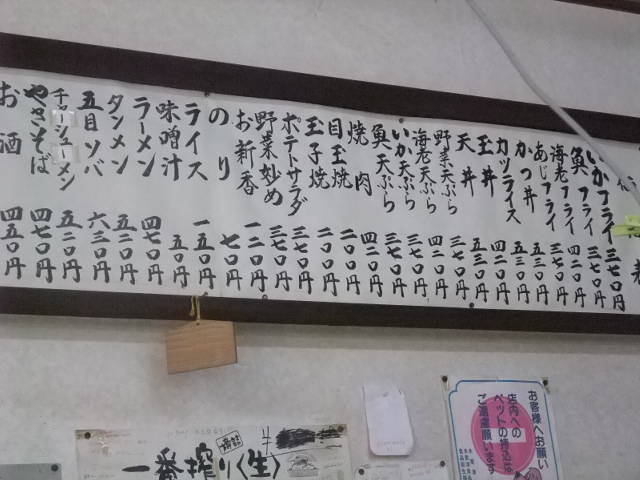 いかフライ 三七〇円
魚フライ 三七〇円
海老フライ 四二〇円
あじフライ 四二〇円
かつ丼 五三〇円
カツライス 五三〇円
玉丼 四二〇円
天丼 五三〇円
野菜天ぷら 三七〇円
海老天ぷら 四二〇円
いか天ぷら 三七〇円
魚天ぷら 三七〇円
焼肉 四二〇円
目玉焼 二〇〇円
玉子焼 二〇〇円
ポテトサラダ 三七〇円
野菜妙め 三七〇円
お新香 一二〇円
のり 七〇円
ライス 一五〇円
味噌汁 五〇円
ラーメン 四七〇円
タンメン 五二〇円
五目ソバ 六三〇円
チャーシューメン 五二〇円
やきそば 四七〇円
お酒 四五〇円
一番搾り〈生〉
お客様へお願い
店内への
ペットの持込は
ご遠慮願います